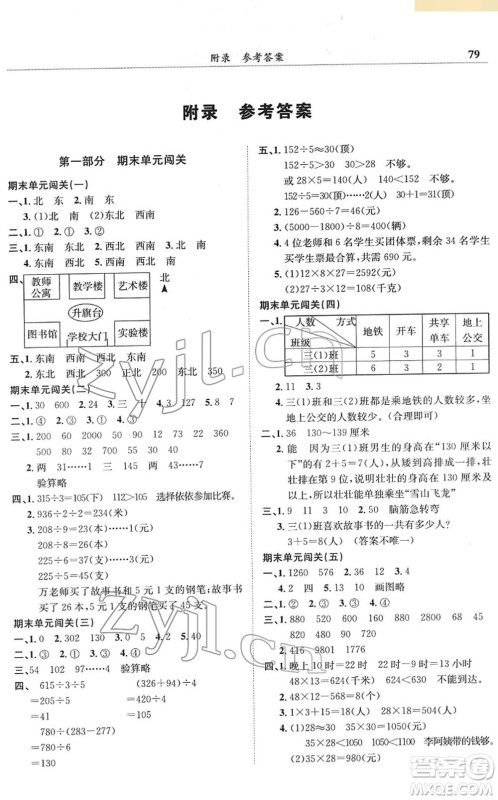 附录 参考答案 79
附录 参考答案
第一部分 期末单元闯关
期末单元闯关(一)
一、1. 北 东 2. 南 东
3. (1)北 南 (2)东北 西南
二、1. ① 2. ① 3. ①
三、1. 东南 西南 2. 西北 东南
3. 南 4. 东北 西南
四、
教师公寓 教学楼 艺术楼 北
升旗台
图书馆 学校大门 实验楼
五、1. 东南 西南 西北 东北
2. 西 东北 西北 300 正北 200 东北 350
期末单元闯关(二)
一、1. 30 600 2. 24 3. 三 十 4. 127 5. 6
6. 3
二、1. ③ 2. ③ 3. ② 4. ②
三、1. 200 60 2000 50 22 730 430 27
90 100 90 103
2. 两 31……5 两 45 三 151……1
验算略
四、1. 315÷3=105(下) 112>105 选择佟佟参加比赛。
2. 936÷2÷2=234(米)
3. 208÷9=23(本)……1(元)
208÷8=26(本)
225÷6=37(支)……3(元)
225÷5=45(支)
万老师买了故事书和 5 元 1 支的钢笔;故事书
买了 26 本,5 元 1 支的钢笔买了 45 支。
期末单元闯关(三)
一、1. 900 130 2. 0 3. 101 4. 9 5. 6
二、1. ② 2. ③ 3. ② 4. ①
三、54 102 97 验算略
四、 615÷3÷5 (326+94)÷7
=205÷5 =420÷7
=41 =60
780÷(283-277)
=780÷6
=130
五、1. 152÷5≈30(顶)
152÷5>30 30>28 不够。
或 28×5=140(人) 140<152 不够。
28×5=140(人) 152>140 不够。
2. 126-560÷7=46(元)
3. (8000-800)÷9=800(辆)
4. 4 位老师和 6 名学生买团体票,剩余 34 名学生
买学生票最合算,共需 690 元。
5. (1)1748÷2÷3≈290(元)
(2)1200÷4÷3=100(千克)
期末单元闯关(四)
一、1.
人数 方式 班级 地铁 开车 共享单车 地上公交
三(1)班 5 3 1 3
三(2)班 6 3 1 2
2. 11 3. 3
4. 三(1)班和三(2)班都是乘地铁的人数较多,坐
地上公交的人数较少。(合理即可)
二、1. 36 130~139 厘米
2. 能 因为三(1)班男生的身高在“130 厘米以
下”的有 2+5=7(人),矮矮又是三(1)班男生
按身高从矮到高的第 8 个,身高在 130~134 厘
米,所以壮壮能单独乘坐“雪山飞龙”
三、1. 38 39 2. 5 3. 2 4. 脑筋急转弯
5. 三(1)班喜欢故事书的一共有多少人?
3+5=8(人) (答案不唯一)
期末单元闯关(五)
一、1. 1260 576 2. 39 12 3. 4 5 4. 86
2. 4 二 四 5. 14 10 画图略
二、1. ② 2. ③ 3. ② 4. ②
三、1. 880 520 600 880 2500 320 660
310 1600 690
2. 638 1159 897 2048 验算略
四、1. 晚上 10 时=22 时 22-10=12(时)
48×12=576(元)
2. (1)28+2=30(元) 35×30=1050(元)
35×28<1050 1050<1060 李阿姨带的钱够。